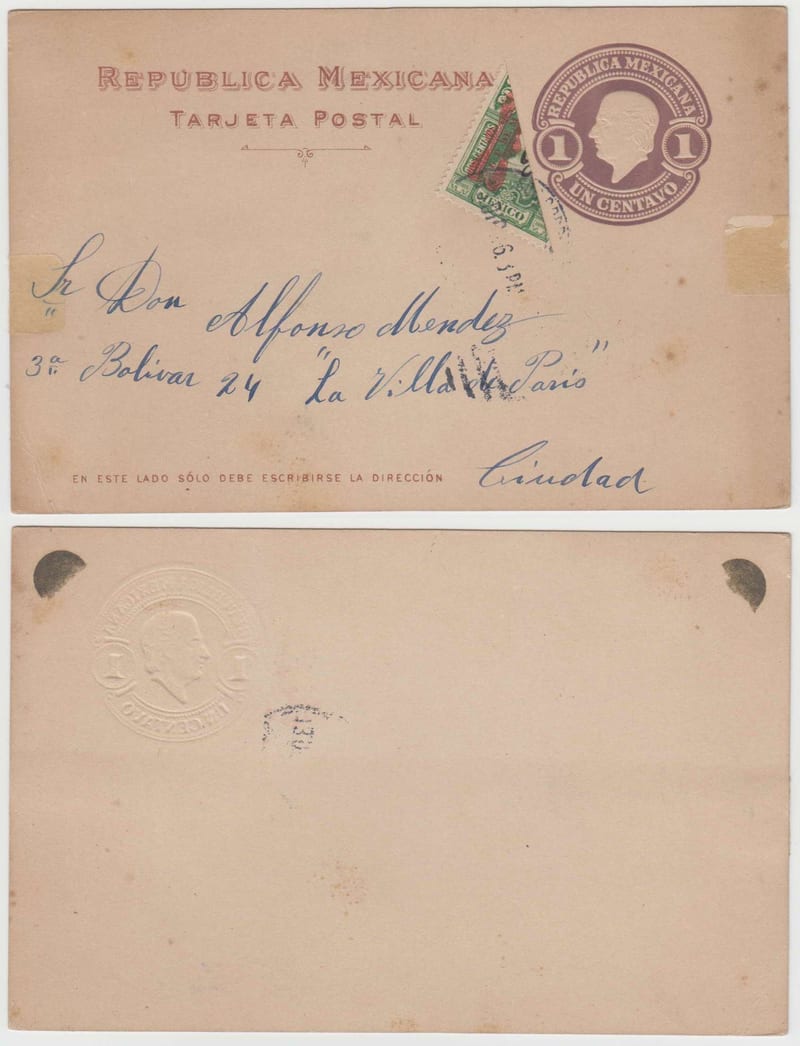 REPUBLICA MEXICANA
TARJETA POSTAL
REPUBLICA MEXICANA
1 1
UN CENTAVO
DOS CENTAVOS
MEXICO
6. 3 PM
Sr Don Alfonso Mendez
3ª Bolivar 24 "La Villa de Paris"
Ciudad
EN ESTE LADO SÓLO DEBE ESCRIBIRSE LA DIRECCIÓN